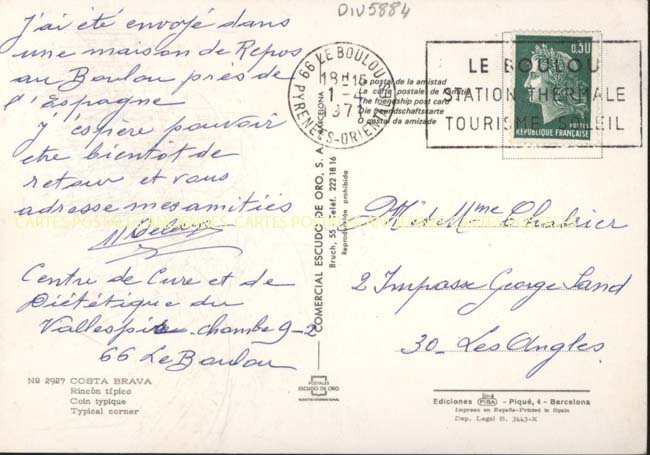 DIV5884
J'ai été envoyé dans
une maison de Repos
au Boulou près de
l'Espagne
J'espère pouvoir
etre bientôt de
retour et vous
adresse mes amitiés
Centre de Cure et de
Diététique du
Vallespir chambre 9-2
66 Le Boulou
No 2927 COSTA BRAVA
Rincón típico
Coin typique
Typical corner
66 LE BOULOU
18H15
1-4
197
PYRENEES-ORIENT
LE BOULOU
STATION THERMALE
TOURISME SOLEIL
0,30
POSTES
REPUBLIQUE FRANÇAISE
postal de la amistad
La carte postale de
The friendship post card
Die Freundschaftskarte
O postal da amizade
COMERCIAL ESCUDO DE ORO, S. A. BARCELONA
Bruch, 55 - Teléf. 222 18 16
Reproducción prohibida
Mr et Mme Chabrier
2 Impasse George Sand
30 - Les Angles
CARTES POSTALES ANCIENNES
POSTALES
ESCUDO DE ORO
Ediciones FISA - Piqué, 4 - Barcelona
Impreso en España-Printed in Spain
Dep. Legal B. 3443-X